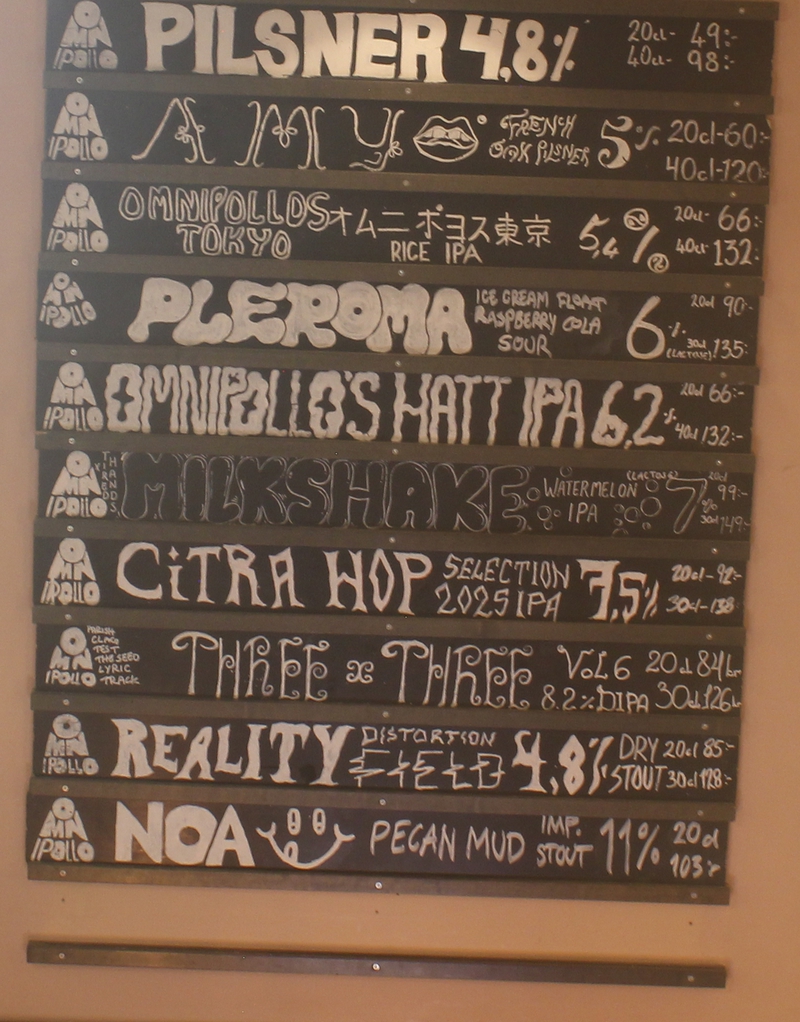 OMNIPOLLO PILSNER 4,8% 20cl- 49:-
40cl- 98:-
OMNIPOLLO AMY FRENCH OAK PILSNER 5% 20cl-60:-
40cl-120:-
OMNIPOLLO OMNIPOLLOS TOKYO オムニポヨス東京 RICE IPA 5,4% 20cl- 66:-
40cl- 132:-
OMNIPOLLO PLEROMA ICE CREAM FLOAT RASPBERRY COLA SOUR 6% (LACTOSE) 20cl 90:-
30cl 135:-
OMNIPOLLO OMNIPOLLO'S HATT IPA 6,2% 20cl 66:-
40cl 132:-
OMNIPOLLO MILKSHAKE WATERMELON IPA (LACTOSE) 7% 20cl 99:-
30cl 149:-
OMNIPOLLO CiTRA HOP SELECTION 2025 IPA 7,5% 20cl-92:-
30cl-138:-
OMNIPOLLO TEST THE SEED LYRIC TRACK THREE x THREE VOL 6 8.2% DIPA 20cl 84kr
30cl 126kr
OMNIPOLLO REALITY DISTORTION FIELD 4,8% DRY STOUT 20cl 85:-
30cl 128:-
OMNIPOLLO NOA PECAN MUD IMP. STOUT 11% 20cl
103:-